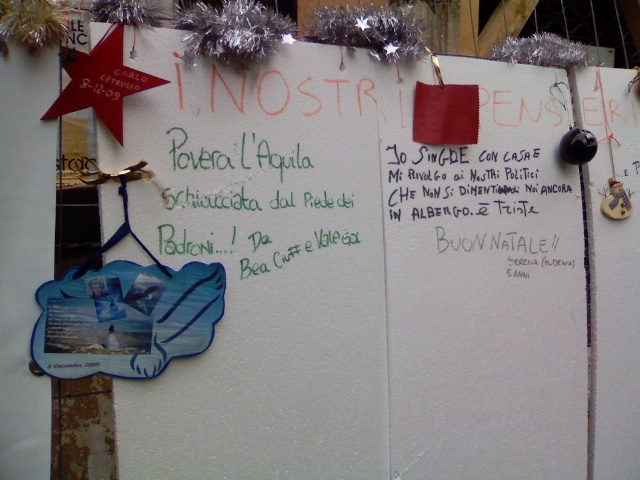 CARLO
8-12-09
I NOSTRI PENSIERI
Povera L'Aquila
Schiacciata dal Piede dei
Padroni...! Da
Bea Ciuff e
IO SINGOE CON CASA E
MI RIVOLGO AI NOSTRI POLITICI
CHE NON SI DIMENTICHINO NOI ANCORA
IN ALBERGO. È TRISTE
BUON NATALE!!
SERENA
6 ANNI
8 Dicembre 2009